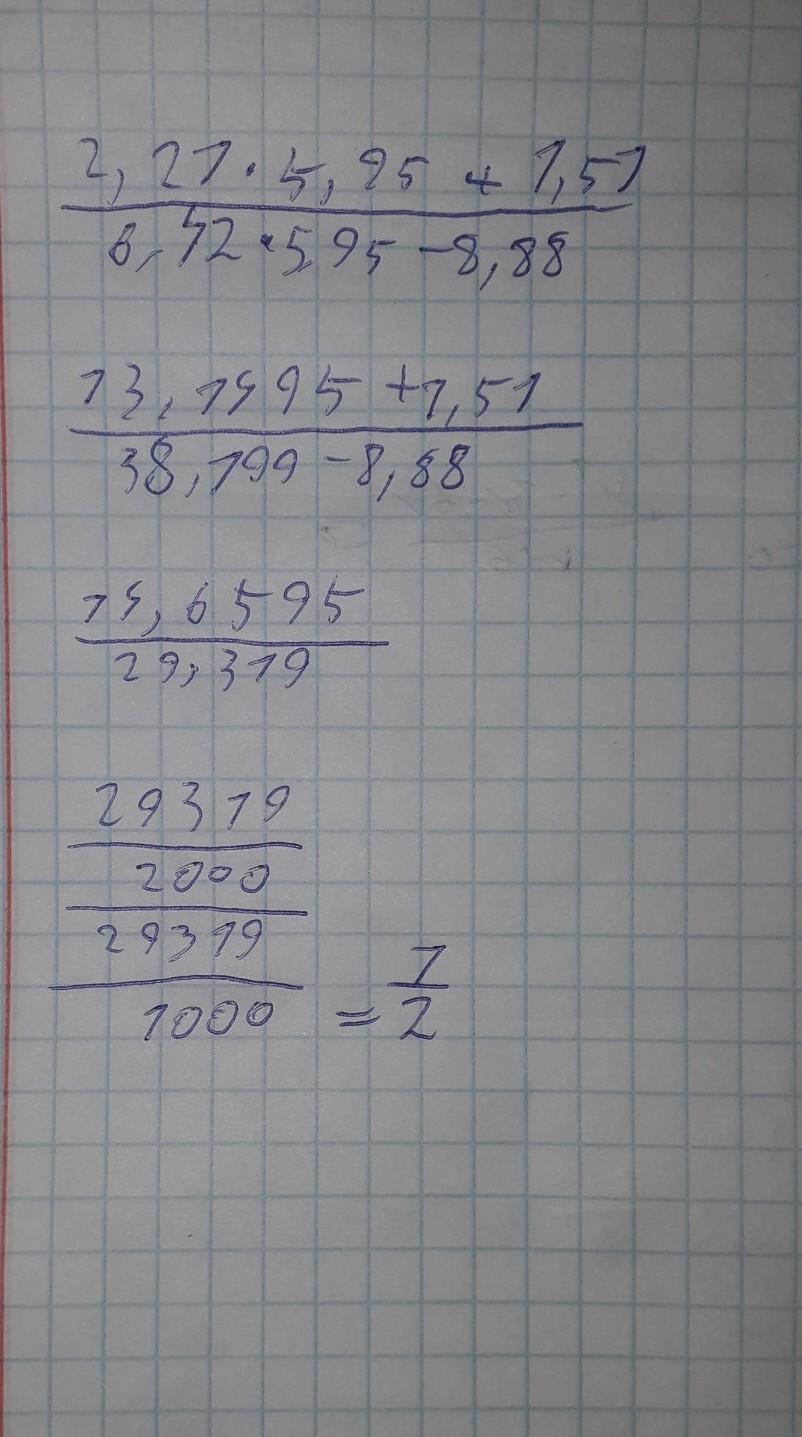 2,21·5,95 + 1,51
6,42·5,95 -8,88
13,1495 +1,51
38,199 -8,88
14,6595
29,319
29319
2000
29319
1000 = 1/2